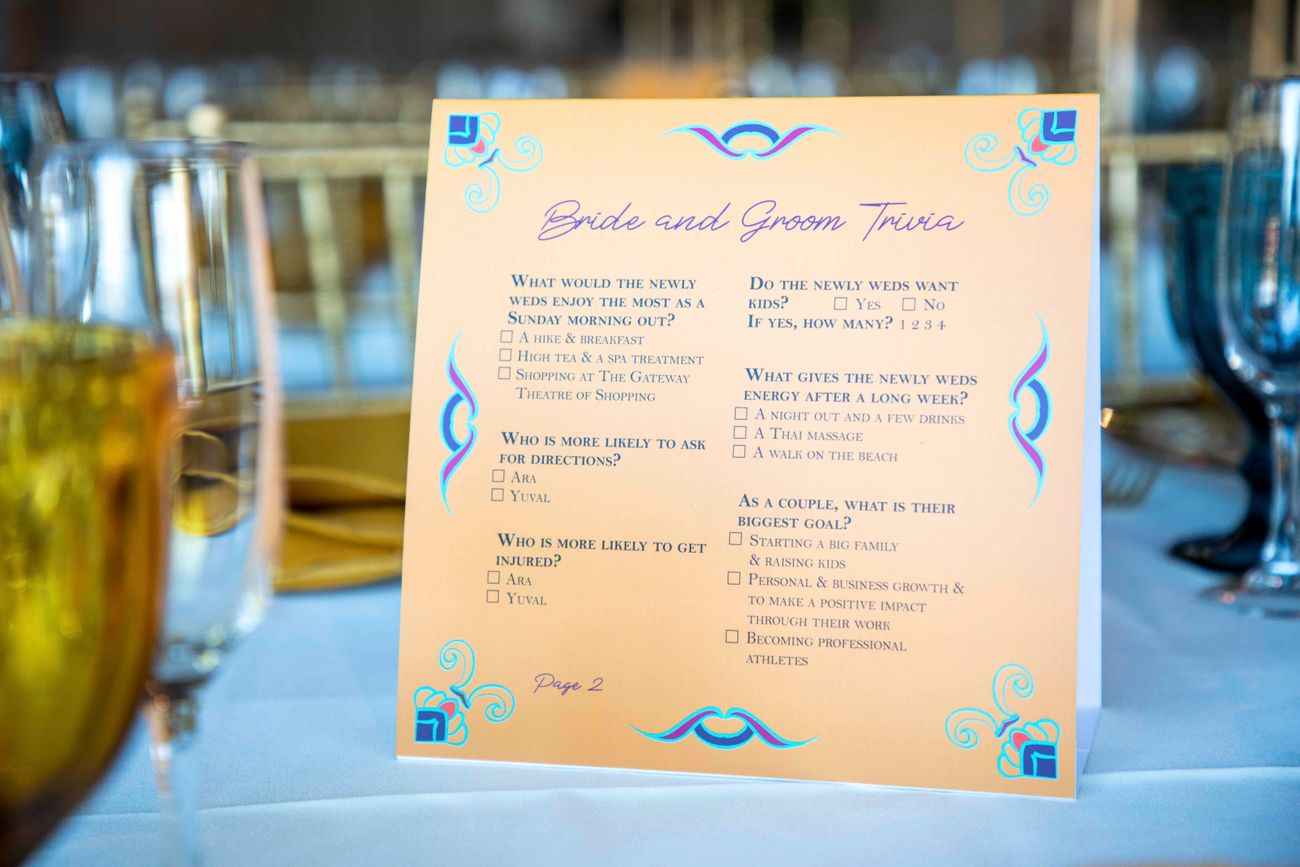 Bride and Groom Trivia
What would the newly
weds enjoy the most as a
Sunday morning out?
☐ A hike & breakfast
☐ High tea & a spa treatment
☐ Shopping at The Gateway
Theatre of Shopping
Who is more likely to ask
for directions?
☐ Ara
☐ Yuval
Who is more likely to get
injured?
☐ Ara
☐ Yuval
Page 2
Do the newly weds want
kids? ☐ Yes ☐ No
If yes, how many? 1 2 3 4
What gives the newly weds
energy after a long week?
☐ A night out and a few drinks
☐ A Thai massage
☐ A walk on the beach
As a couple, what is their
biggest goal?
☐ Starting a big family
& raising kids
☐ Personal & business growth &
to make a positive impact
through their work
☐ Becoming professional
athletes